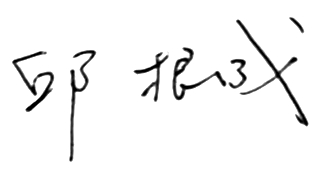 邱根成